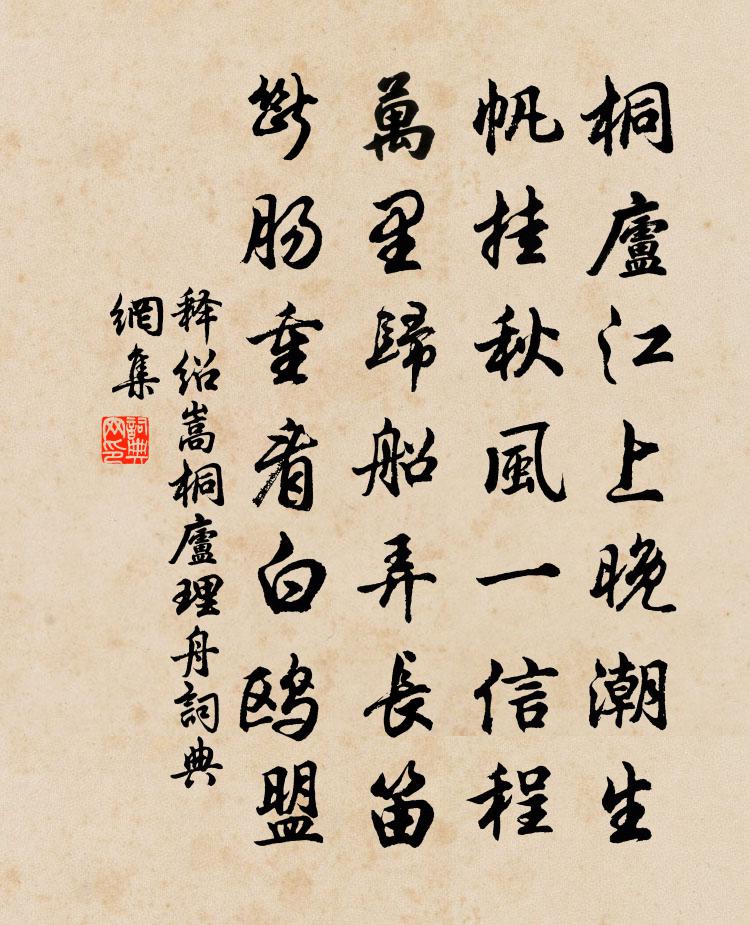 桐廬江上晚潮生
帆挂秋風一信程
萬里歸船弄長笛
斷肠重看白鸥盟
释绍嵩桐廬理舟詞典
網集
詞典
网印